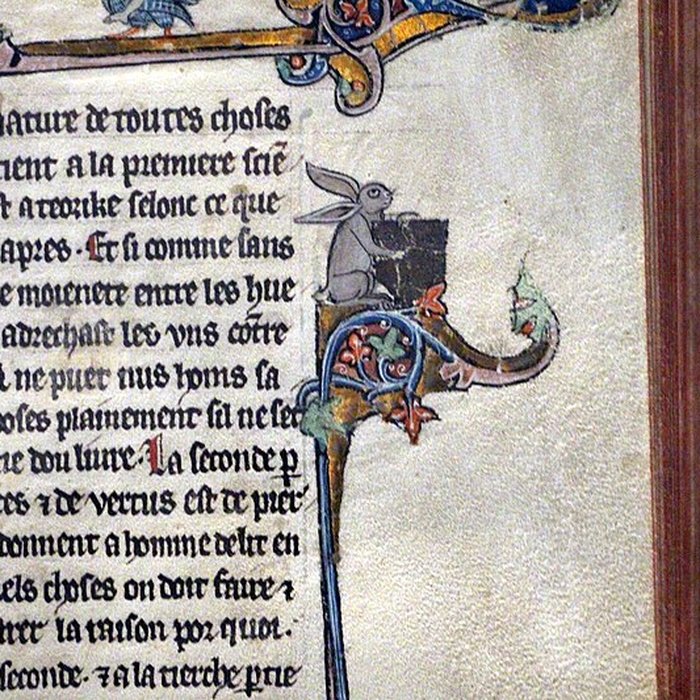 nature de toutes choses
tient a la premiere sciē
st a teorike selonc ce que
apres · Et si comme sans
e moienete entre les hue
adrechast les vns cōtre
ne puet nus homs sa
oses plainement sil ne set
ie dou liure · La seconde p
ces ⁊ de vertus est de pier
donnent a homme delit en
els choses on doit faire ⁊
trer la raison por quoi .
seconde · ⁊ a la tierche ptie